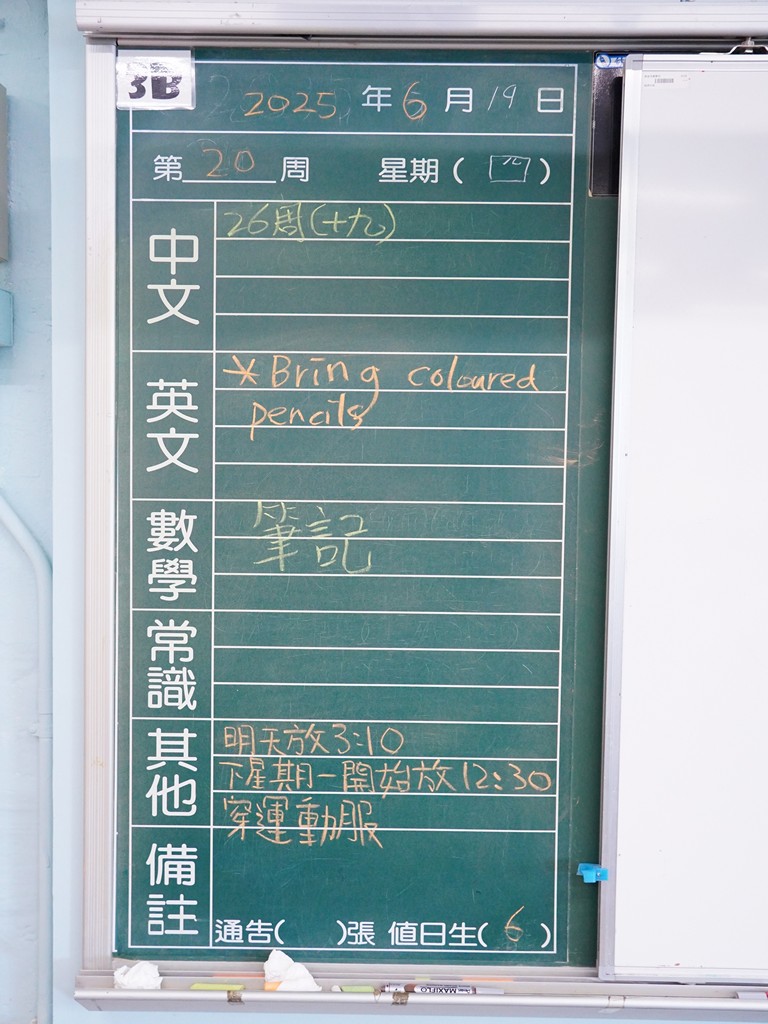 3B
2025年6月19日
第20周 星期(四)
中文
26周(十九)
英文
*Bring coloured
pencils
數學
筆記
常識
其他
明天放3:10
下星期一開始放12:30
穿運動服
備註
通告( )張 值日生(6)
MAXIFLO